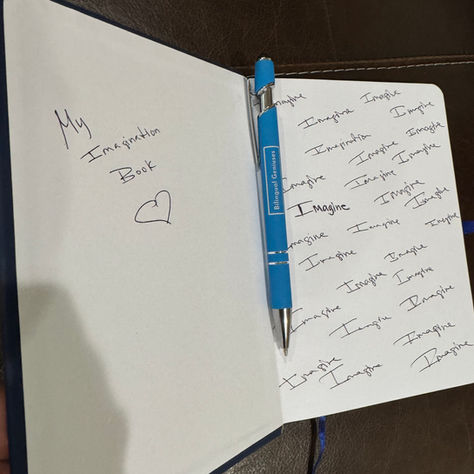 My
Imagination
Book
Bilingual Geniuses
Imagine
Imagine
Imagine
Imagine
Imagine
Imagine
Imagine
Imagine
Imagine
Imagine
Imagine
IMagine
Imagine
Imagine
Imagine
Imagine
Imagine
Imagine
Imagine
Imagine
Imagine
Imagine
Imagine
Imagine
Imagine
Imagine